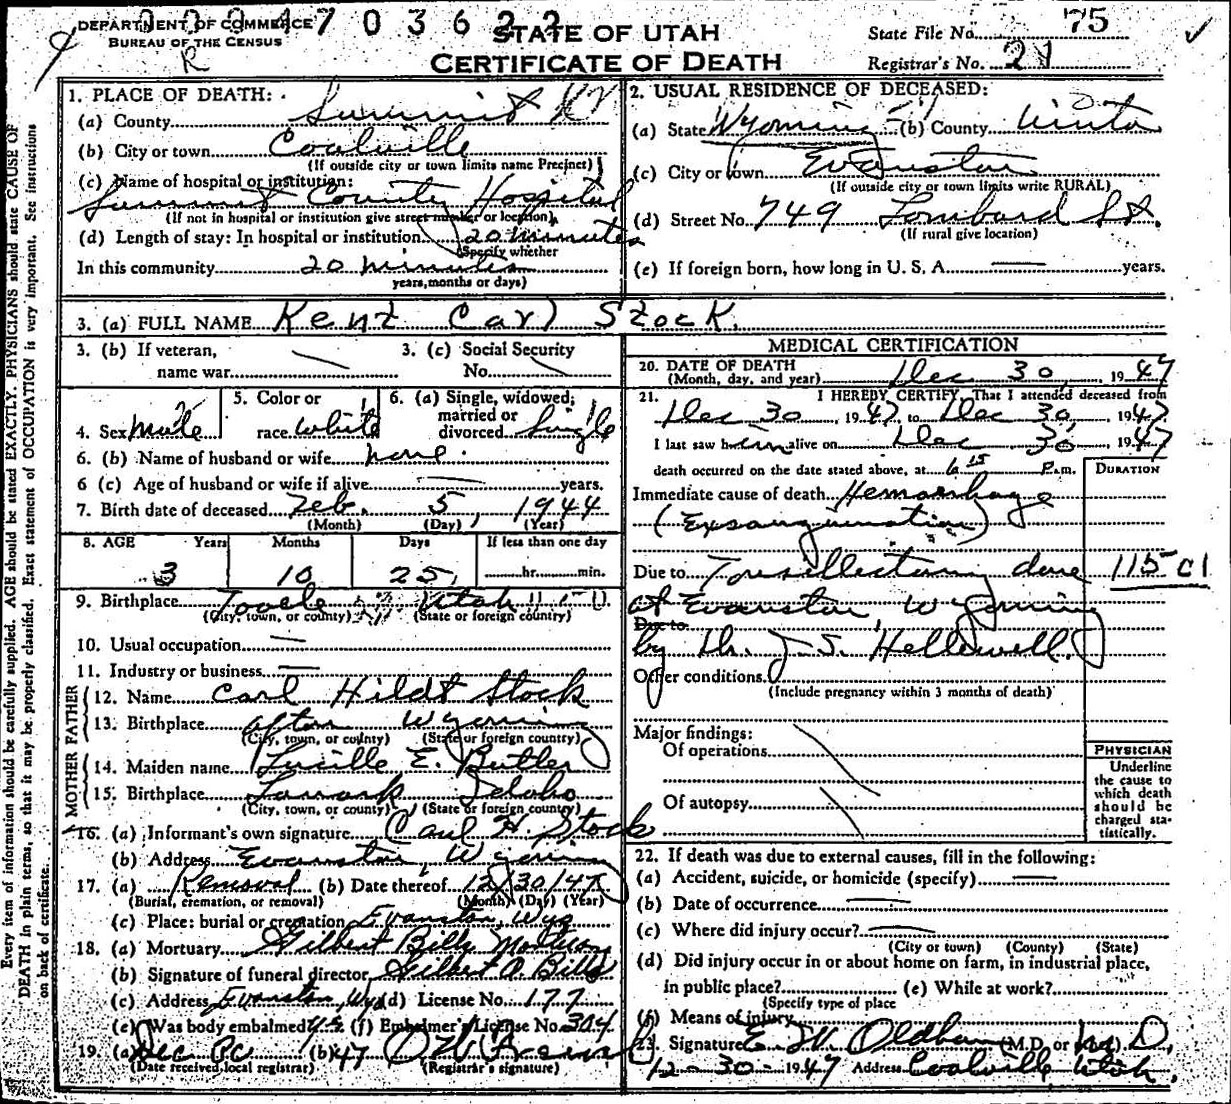 DEPARTMENT OF COMMERCE
BUREAU OF THE CENSUS
STATE OF UTAH
CERTIFICATE OF DEATH
State File No. 75
Registrar's No. 21
Every item of information should be carefully supplied. AGE should be stated EXACTLY. PHYSICIANS should state CAUSE OF
DEATH in plain terms, so that it may be properly classified. Exact statement of OCCUPATION is very important. See instructions
on back of certificate.
1. PLACE OF DEATH:
(a) County Summit
(b) City or town Coalville
(If outside city or town limits name Precinct)
(c) Name of hospital or institution:
Summit County Hospital
(If not in hospital or institution give street number or location)
(d) Length of stay: In hospital or institution 20 minutes
(Specify whether
In this community 20 minutes
years, months or days)
2. USUAL RESIDENCE OF DECEASED:
(a) State Wyoming (b) County Uinta
(c) City or town Evanston
(If outside city or town limits write RURAL)
(d) Street No. 749 Lombard St.
(If rural give location)
(e) If foreign born, how long in U. S. A. — years.
3. (a) FULL NAME Kent Carl Stock.
3. (b) If veteran,
name war
3. (c) Social Security
No.
4. Sex male
5. Color or
race white
6. (a) Single, widowed,
married or
divorced Single
6. (b) Name of husband or wife none.
6 (c) Age of husband or wife if alive — years.
7. Birth date of deceased Feb. 5, 1944
(Month) (Day) (Year)
8. AGE Years Months Days If less than one day
3 10 25 hr. min.
9. Birthplace Tooele Utah
(City, town, or county) (State or foreign country)
10. Usual occupation —
11. Industry or business —
FATHER
12. Name Carl Hildt Stock
13. Birthplace Afton Wyoming
(City, town, or county) (State or foreign country)
MOTHER
14. Maiden name Lucille E. Butler
15. Birthplace Idaho
(City, town, or county) (State or foreign country)
16. (a) Informant's own signature Carl H. Stock
(b) Address Evanston, Wyoming
17. (a) Removal (b) Date thereof 12/30/47
(Burial, cremation, or removal) (Month) (Day) (Year)
(c) Place: burial or cremation Evanston, Wyo
18. (a) Mortuary Gilbert Bills
(b) Signature of funeral director Gilbert A. Bills
(c) Address Evanston, Wyo (d) License No. 177
(e) Was body embalmed? (f) Embalmer's License No. 304
19. (a) Dec 30 (b) 47
(Date received local registrar) (Registrar's signature)
MEDICAL CERTIFICATION
20. DATE OF DEATH
(Month, day, and year) Dec 30, 1947
21. I HEREBY CERTIFY, That I attended deceased from
Dec 30, 1947 to Dec 30, 1947
I last saw him alive on Dec 30, 1947
death occurred on the date stated above, at 6 15 P.m.
DURATION
Immediate cause of death Hemorrhage
(Exsanguination)
Due to Tonsillectomy done 115 c1
at Evanston, Wyoming
Due to
by Dr. J. S. Hellewell.
Other conditions
(Include pregnancy within 3 months of death)
Major findings:
Of operations
Of autopsy
PHYSICIAN
Underline
the cause to
which death
should be
charged sta-
tistically.
22. If death was due to external causes, fill in the following:
(a) Accident, suicide, or homicide (specify) —
(b) Date of occurrence —
(c) Where did injury occur? —
(City or town) (County) (State)
(d) Did injury occur in or about home on farm, in industrial place,
in public place? (e) While at work?
(Specify type of place
(f) Means of injury
23. Signature E. W. Oldham (M.D. or M.D.
12-30-1947 Address Coalville Utah.